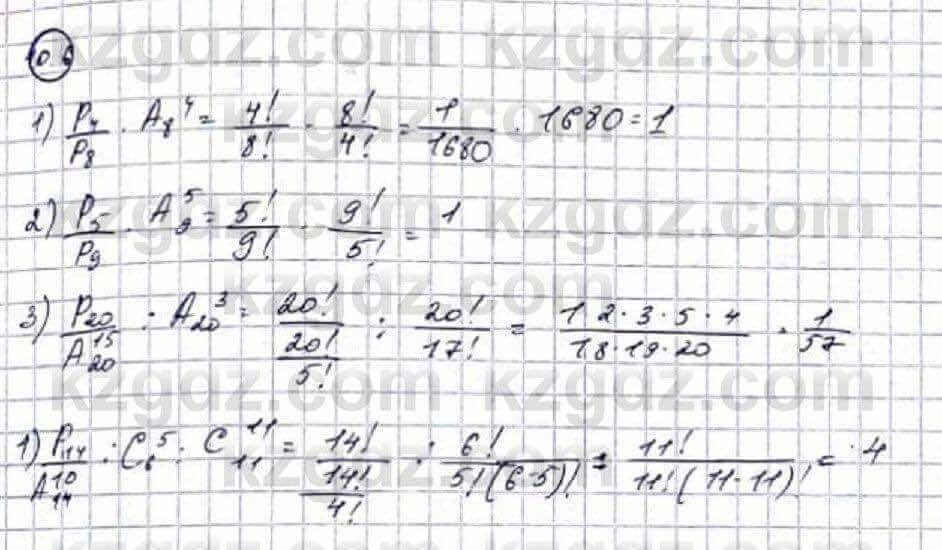 10.6
1) P₄/P₈ · A₈⁴ = 4!/8! · 8!/4! = 1/1680 · 1680 = 1
2) P₅/P₉ · A₉⁵ = 5!/9! · 9!/5! = 1
3) P₂₀/A₂₀¹⁵ : A₂₀³ = 20!/(20!/5!) : 20!/17! = 1 2 · 3 · 5 · 4/18 · 19 · 20 · 1/57
1) P₁₄/A₁₄¹⁰ : C₆⁵ : C₁₁¹¹ = 14!/(14!/4!) : 6!/5!(6-5)! = 11!/11!(11-11)! = 4
kzgdz.com kzgdz.com
kzgdz.com kzgdz.com
kzgdz.com kzgdz.com
kzgdz.com kzgdz.com
kzgdz.com kzgdz.com
kzgdz.com kzgdz.com
kzgdz.com kzgdz.com